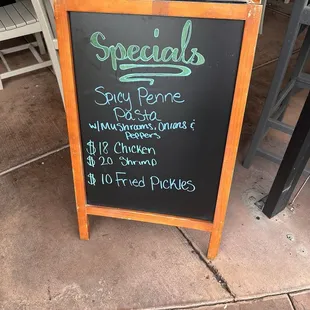 Specials
Spicy Penne
Pasta
w/Mushrooms, Onions &
Peppers
$18 Chicken
$20 Shrimp
$10 Fried Pickles